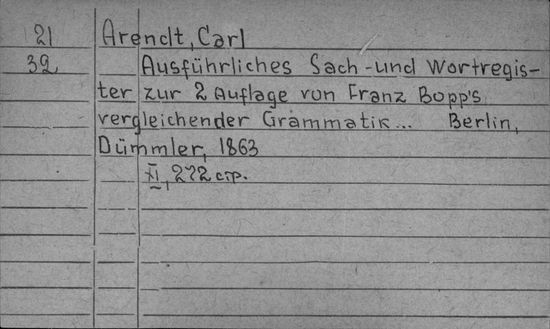 21 Arendt, Carl
39 Ausführliches Sach-und Wortregis-
ter zur 2 Auflage von Franz Bopp's
vergleichender Grammatik... Berlin,
Dümmler, 1863
XI, 272 стр.